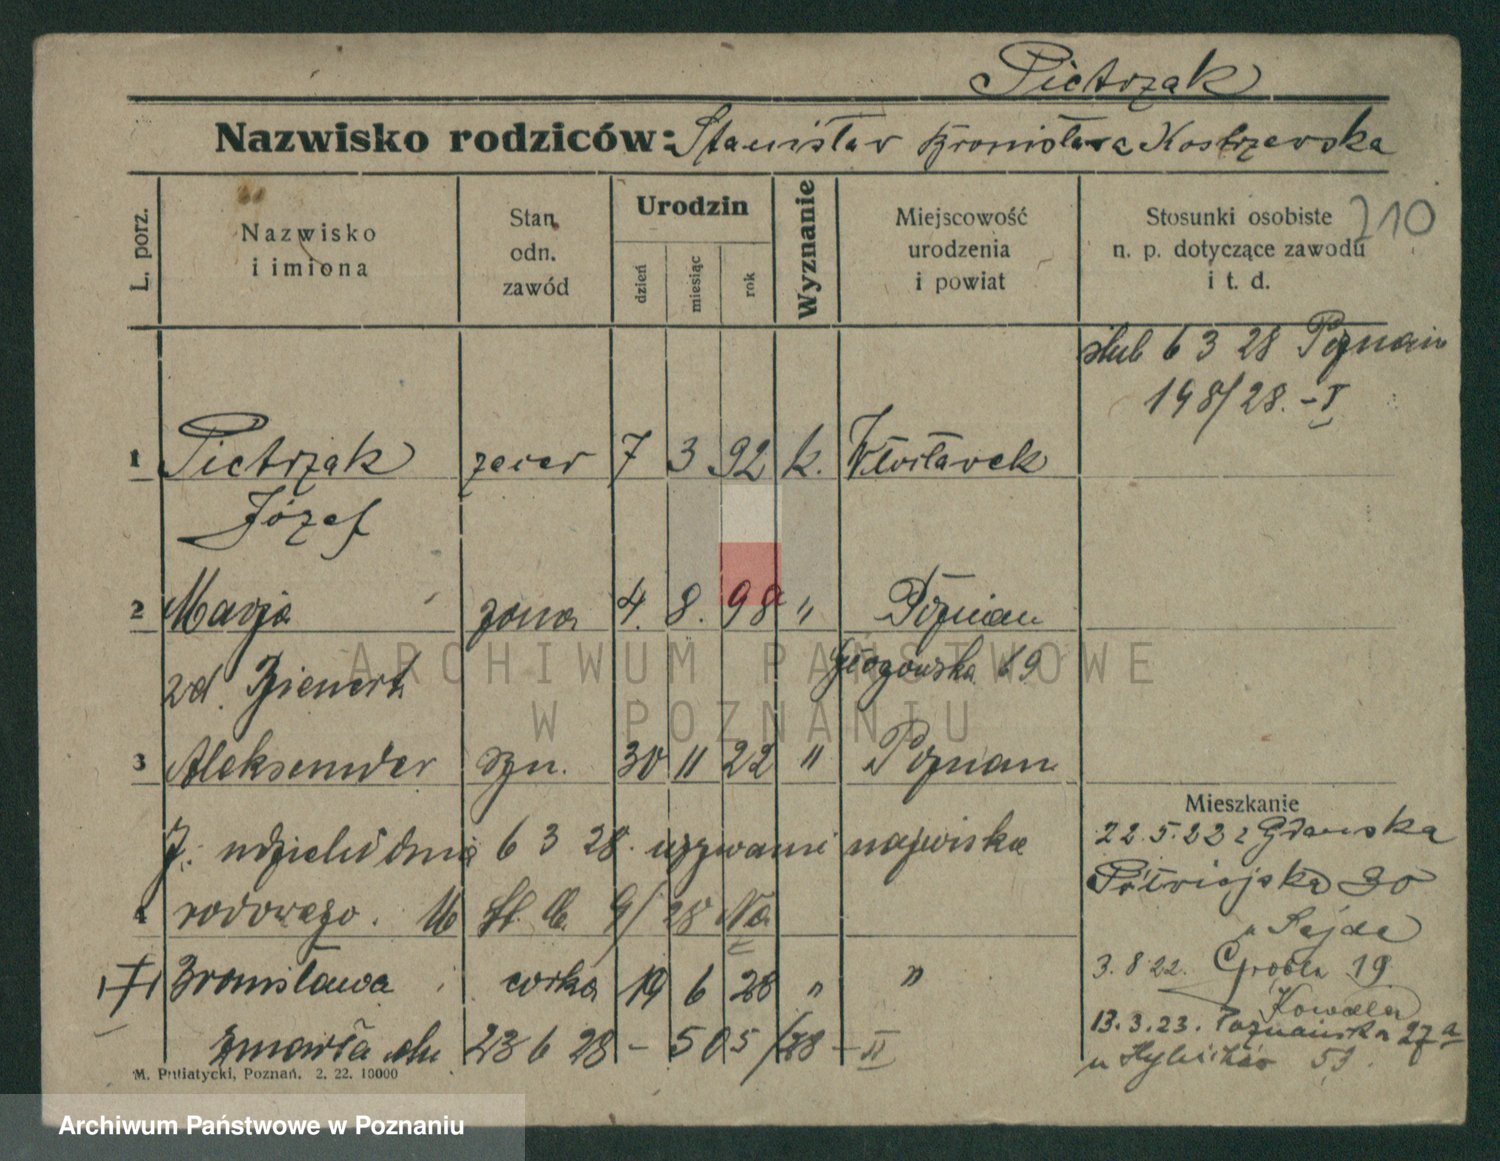 Pietrzak
Nazwisko rodziców: Stanisław Bronisława Kostrzewska
L. porz.
Nazwisko i imiona
Stan, odn. zawód
Urodzin
dzień
miesiąc
rok
Wyznanie
Miejscowość urodzenia i powiat
Stosunki osobiste n. p. dotyczące zawodu i t. d.
210
ślub 6 3 28 Poznań
198/28. - I
1 Pietrzak zecer 7 3 92 k. Włocławek
Józef
2 Marja żona 4. 8. 98 " Poznań
zd. Bienert Głogowska 69
3 Aleksander syn. 30 11 22 " Poznań
Mieszkanie
J. udzielił dnia 6 3 28. nazwiska
4 rodowego. 9/28
Bronisława córka 19 6 28 " "
zmarła dn 23 6 28 - 505/28 - II
22.5.22 z Gdańska
Półwiejska 30
u Sajda
3.8.22. Grobla 19
Kowalka
13.3.23. Poznańska 27a
u 51.
M. Putiatycki, Poznań. 2. 22. 10000
ARCHIWUM PAŃSTWOWE
W POZNANIU
Archiwum Państwowe w Poznaniu